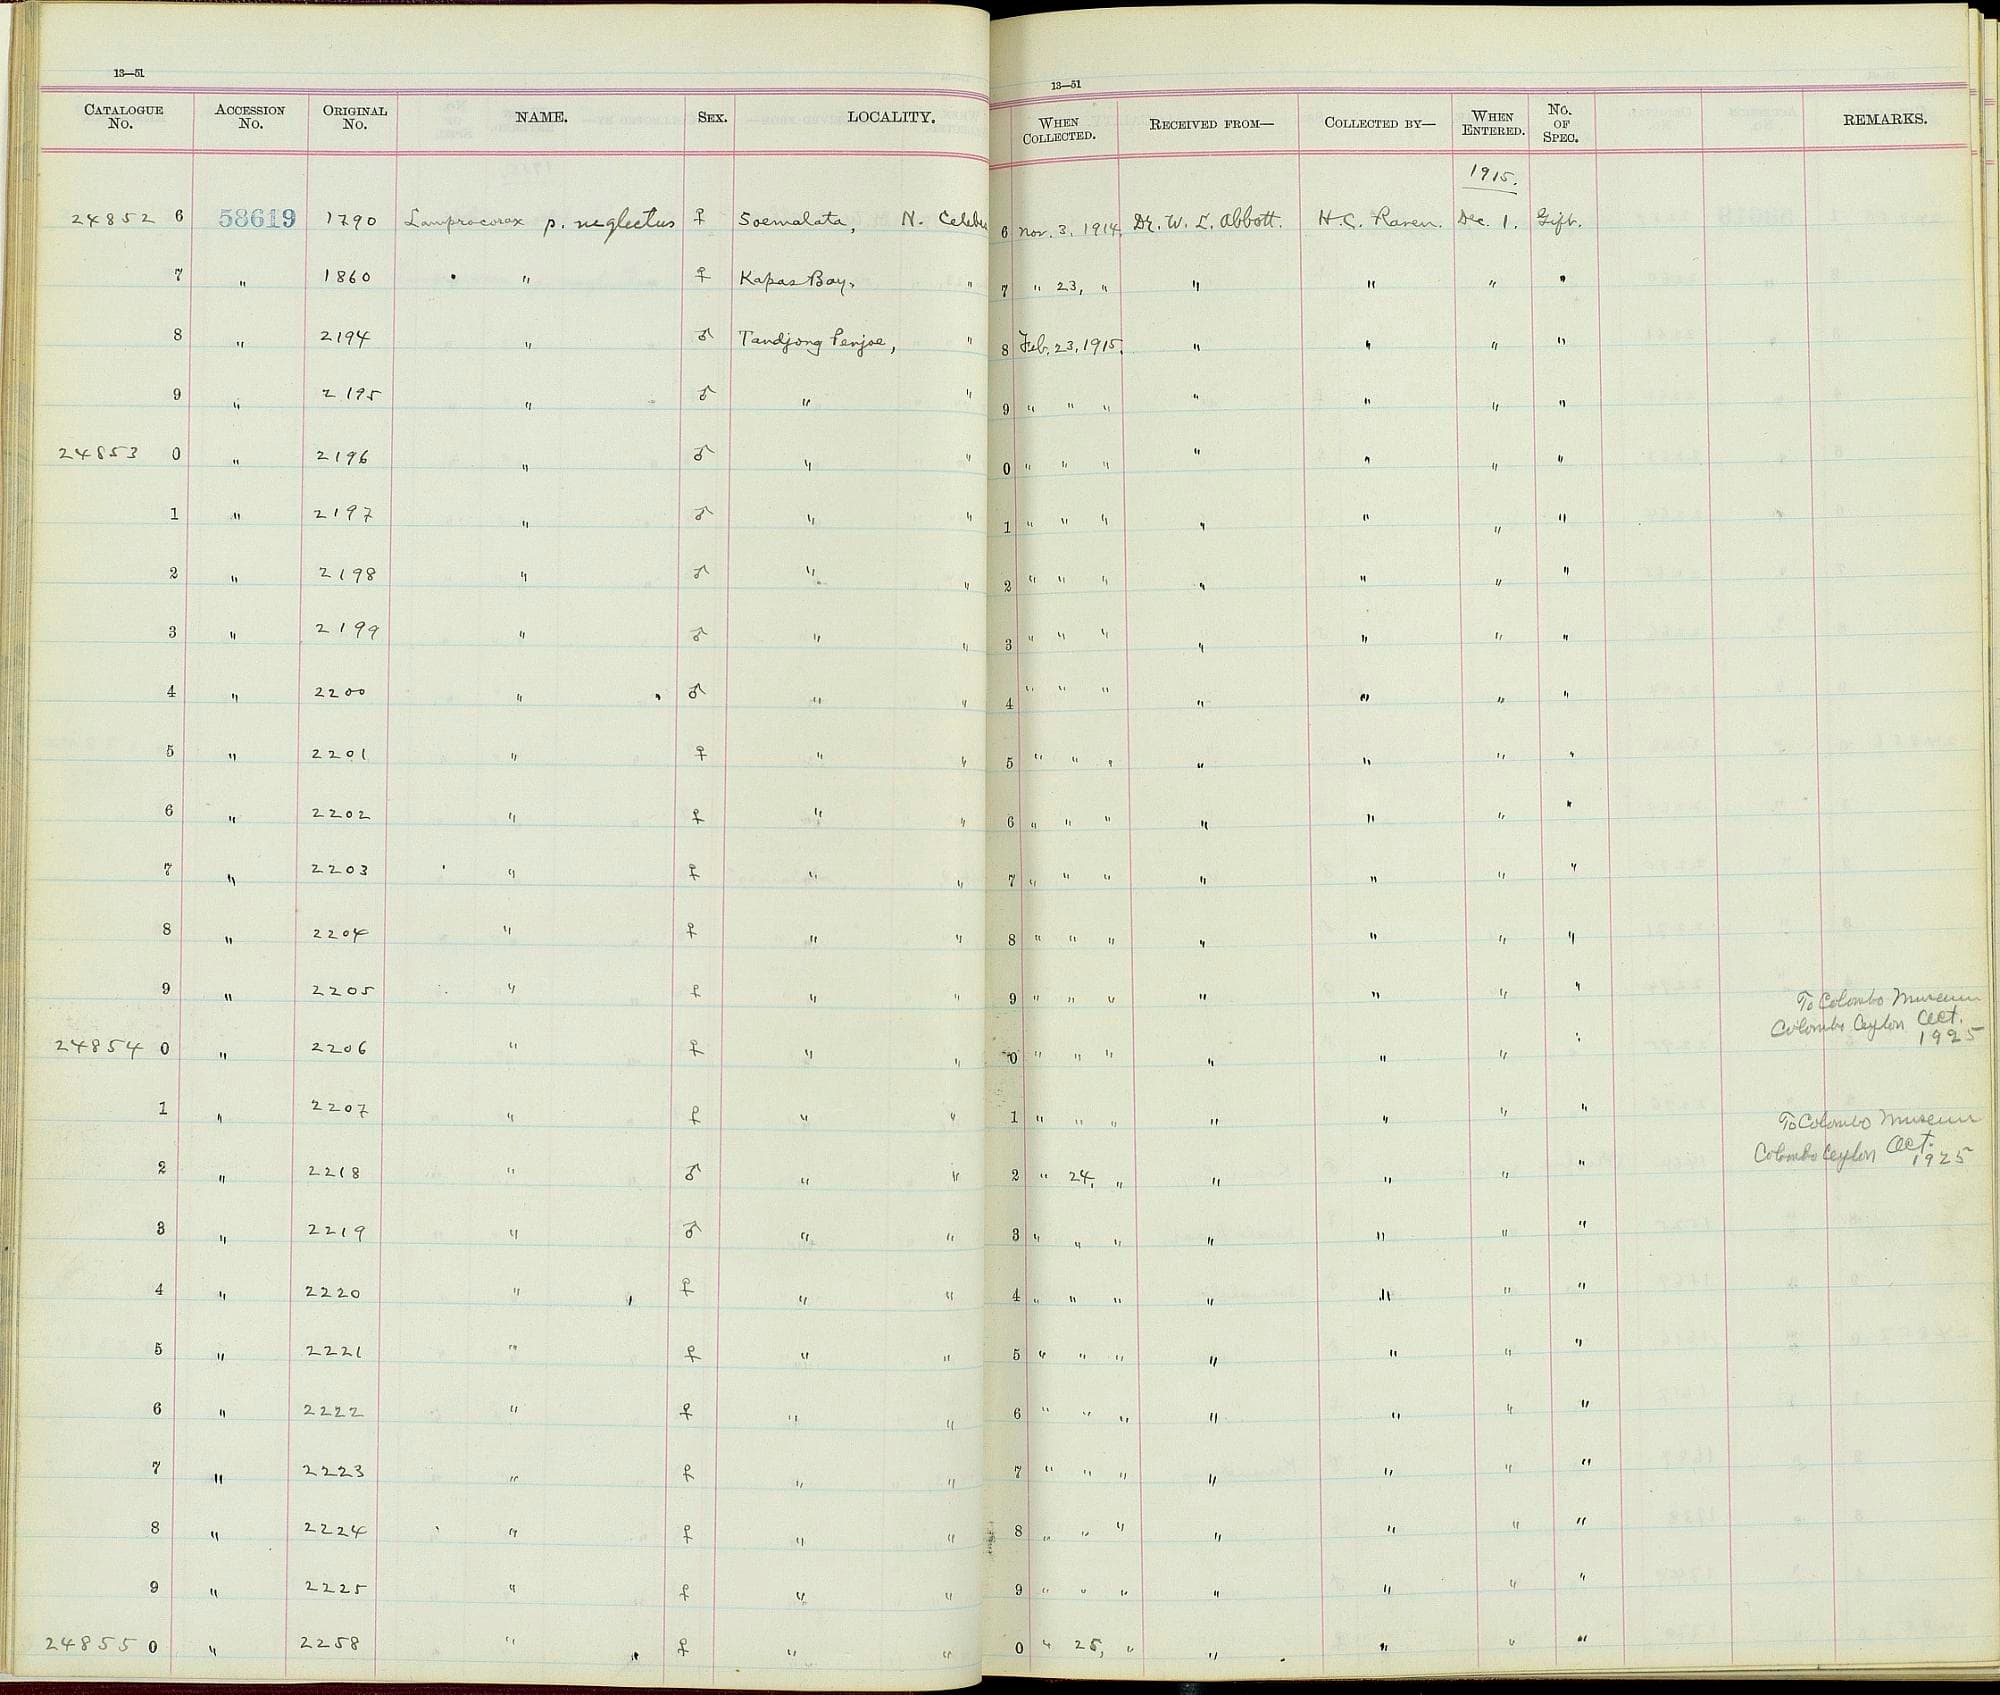 13—51
CATALOGUE No. ACCESSION No. ORIGINAL No. NAME. SEX. LOCALITY.
24852 6 58619 1790 Lamprocorax p. neglectus ♀ Soemalata, N. Celebes
7 " 1860 " ♀ Kapas Bay, "
8 " 2194 " ♂ Tandjong Penjoe, "
9 " 2195 " ♂ " "
24853 0 " 2196 " ♂ " "
1 " 2197 " ♂ " "
2 " 2198 " ♂ " "
3 " 2199 " ♂ " "
4 " 2200 " ♂ " "
5 " 2201 " ♀ " "
6 " 2202 " ♀ " "
7 " 2203 " ♀ " "
8 " 2204 " ♀ " "
9 " 2205 " ♀ " "
24854 0 " 2206 " ♀ " "
1 " 2207 " ♀ " "
2 " 2218 " ♂ " "
3 " 2219 " ♂ " "
4 " 2220 " ♀ " "
5 " 2221 " ♀ " "
6 " 2222 " ♀ " "
7 " 2223 " ♀ " "
8 " 2224 " ♀ " "
9 " 2225 " ♀ " "
24855 0 " 2258 " ♀ " "
13—51
WHEN COLLECTED. RECEIVED FROM— COLLECTED BY— WHEN ENTERED. No. OF SPEC. REMARKS.
1915.
6 Nov. 3, 1914. Dr. W. L. Abbott. H. C. Raven. Dec. 1. Gift.
7 " 23, " " " " "
8 Feb. 23, 1915. " " " "
9 " " " " " " "
0 " " " " " " "
1 " " " " " " "
2 " " " " " " "
3 " " " " " " "
4 " " " " " " "
5 " " " " " " "
6 " " " " " " "
7 " " " " " " "
8 " " " " " " "
9 " " " " " " " To Colombo Museum
Colombo Ceylon Oct.
1925
0 " " " " " " "
1 " " " " " " " To Colombo Museum
Colombo Ceylon Oct.
1925
2 " 24, " " " " "
3 " " " " " " "
4 " " " " " " "
5 " " " " " " "
6 " " " " " " "
7 " " " " " " "
8 " " " " " " "
9 " " " " " " "
0 " 25, " " " " "